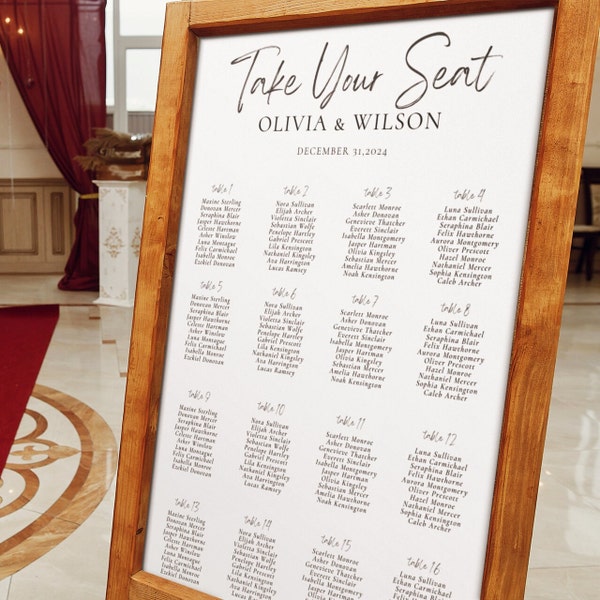 Take Your Seat
OLIVIA & WILSON
DECEMBER 31,2024
table 1
Maxine Sterling
Donovan Mercer
Seraphina Blair
Jasper Hawthorne
Celeste Harmon
Asher Winslow
Luna Montague
Felix Carmichael
Isabella Monroe
Ezekiel Donovan
table 2
Nora Sullivan
Elijah Archer
Violetta Sinclair
Sebastian Wolfe
Penelope Hartley
Gabriel Prescott
Lila Kensington
Nathaniel Kingsley
Ava Harrington
Lucas Ramsey
table 3
Scarlett Monroe
Asher Donovan
Genevieve Thatcher
Everett Sinclair
Isabella Montgomery
Jasper Harmon
Olivia Kingsley
Sebastian Mercer
Amelia Hawthorne
Noah Kensington
table 4
Luna Sullivan
Ethan Carmichael
Seraphina Blair
Felix Hawthorne
Aurora Montgomery
Oliver Prescott
Hazel Monroe
Nathaniel Mercer
Sophia Kensington
Caleb Archer
table 5
Maxine Sterling
Donovan Mercer
Seraphina Blair
Jasper Hawthorne
Asher Winslow
Luna Montague
Felix Carmichael
Isabella Monroe
Ezekiel Donovan
table 6
Nora Sullivan
Elijah Archer
Violetta Sinclair
Sebastian Wolfe
Penelope Hartley
Gabriel Prescott
Lila Kensington
Nathaniel Kingsley
Ava Harrington
Lucas Ramsey
table 7
Scarlett Monroe
Asher Donovan
Genevieve Thatcher
Everett Sinclair
Isabella Montgomery
Jasper Harmon
Olivia Kingsley
Sebastian Mercer
Amelia Hawthorne
Noah Kensington
table 8
Luna Sullivan
Ethan Carmichael
Seraphina Blair
Felix Hawthorne
Aurora Montgomery
Oliver Prescott
Hazel Monroe
Nathaniel Mercer
Sophia Kensington
Caleb Archer
table 9
Maxine Sterling
Donovan Mercer
Seraphina Blair
Jasper Hawthorne
Asher Winslow
Luna Montague
Felix Carmichael
Isabella Monroe
Ezekiel Donovan
table 10
Nora Sullivan
Elijah Archer
Violetta Sinclair
Sebastian Wolfe
Penelope Hartley
Gabriel Prescott
Lila Kensington
Nathaniel Kingsley
Ava Harrington
Lucas Ramsey
table 11
Scarlett Monroe
Asher Donovan
Genevieve Thatcher
Everett Sinclair
Isabella Montgomery
Jasper Harmon
Olivia Kingsley
Sebastian Mercer
Amelia Hawthorne
Noah Kensington
table 12
Luna Sullivan
Ethan Carmichael
Seraphina Blair
Felix Hawthorne
Aurora Montgomery
Oliver Prescott
Hazel Monroe
Nathaniel Mercer
Sophia Kensington
Caleb Archer
table 13
Maxine Sterling
Donovan Mercer
Seraphina Blair
Jasper Hawthorne
Asher Winslow
Luna Montague
Felix Carmichael
Isabella Monroe
Ezekiel Donovan
table 14
Nora Sullivan
Elijah Archer
Violetta Sinclair
Sebastian Wolfe
Penelope Hartley
Gabriel Prescott
Lila Kensington
table 15
Scarlett Monroe
Asher Donovan
Genevieve Thatcher
Everett Sinclair
table 16
Luna Sullivan
Ethan Carmichael